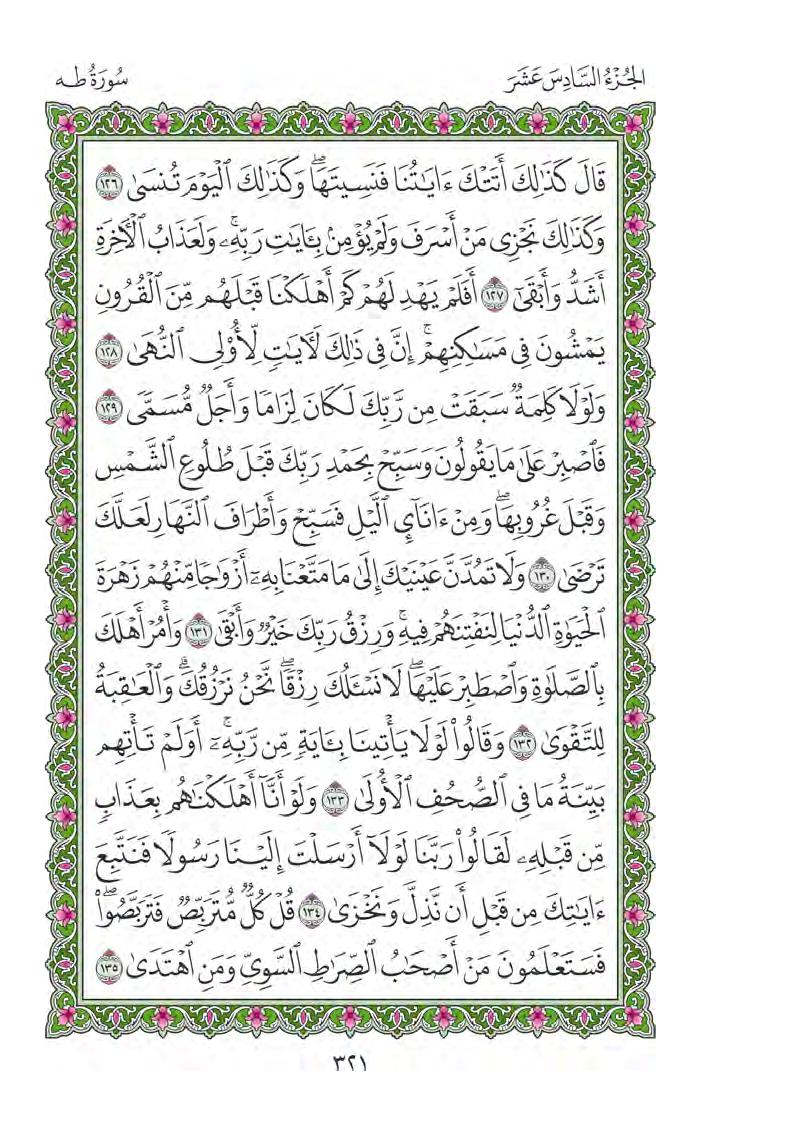 الجُزْءُ السَّادِسَ عَشَرَ
سُورَةُ طه
قَالَ كَذَٰلِكَ أَتَتْكَ ءَايَٰتُنَا فَنَسِيتَهَاۖ وَكَذَٰلِكَ ٱلْيَوْمَ تُنسَىٰ ١٢٦
وَكَذَٰلِكَ نَجْزِى مَنْ أَسْرَفَ وَلَمْ يُؤْمِنۢ بِـَٔايَٰتِ رَبِّهِۦۚ وَلَعَذَابُ ٱلْـَٔاخِرَةِ
أَشَدُّ وَأَبْقَىٰٓ ١٢٧ أَفَلَمْ يَهْدِ لَهُمْ كَمْ أَهْلَكْنَا قَبْلَهُم مِّنَ ٱلْقُرُونِ
يَمْشُونَ فِى مَسَٰكِنِهِمْۚ إِنَّ فِى ذَٰلِكَ لَـَٔايَٰتٍ لِّأُو۟لِى ٱلنُّهَىٰ ١٢٨
وَلَوْلَا كَلِمَةٌ سَبَقَتْ مِن رَّبِّكَ لَكَانَ لِزَامًا وَأَجَلٌ مُّسَمًّى ١٢٩
فَٱصْبِرْ عَلَىٰ مَا يَقُولُونَ وَسَبِّحْ بِحَمْدِ رَبِّكَ قَبْلَ طُلُوعِ ٱلشَّمْسِ
وَقَبْلَ غُرُوبِهَاۖ وَمِنْ ءَانَآئِ ٱلَّيْلِ فَسَبِّحْ وَأَطْرَافَ ٱلنَّهَارِ لَعَلَّكَ
تَرْضَىٰ ١٣٠ وَلَا تَمُدَّنَّ عَيْنَيْكَ إِلَىٰ مَا مَتَّعْنَا بِهِۦٓ أَزْوَٰجًا مِّنْهُمْ زَهْرَةَ
ٱلْحَيَوٰةِ ٱلدُّنْيَا لِنَفْتِنَهُمْ فِيهِۚ وَرِزْقُ رَبِّكَ خَيْرٌ وَأَبْقَىٰ ١٣١ وَأْمُرْ أَهْلَكَ
بِٱلصَّلَوٰةِ وَٱصْطَبِرْ عَلَيْهَاۖ لَا نَسْـَٔلُكَ رِزْقًاۖ نَّحْنُ نَرْزُقُكَۗ وَٱلْعَٰقِبَةُ
لِلتَّقْوَىٰ ١٣٢ وَقَالُوا۟ لَوْلَا يَأْتِينَا بِـَٔايَةٍ مِّن رَّبِّهِۦٓۚ أَوَلَمْ تَأْتِهِم
بَيِّنَةُ مَا فِى ٱلصُّحُفِ ٱلْأُولَىٰ ١٣٣ وَلَوْ أَنَّآ أَهْلَكْنَٰهُم بِعَذَابٍ
مِّن قَبْلِهِۦ لَقَالُوا۟ رَبَّنَا لَوْلَآ أَرْسَلْتَ إِلَيْنَا رَسُولًا فَنَتَّبِعَ
ءَايَٰتِكَ مِن قَبْلِ أَن نَّذِلَّ وَنَخْزَىٰ ١٣٤ قُلْ كُلٌّ مُّتَرَبِّصٌ فَتَرَبَّصُوا۟ۖ
فَسَتَعْلَمُونَ مَنْ أَصْحَٰبُ ٱلصِّرَٰطِ ٱلسَّوِىِّ وَمَنِ ٱهْتَدَىٰ ١٣٥
٣٢١